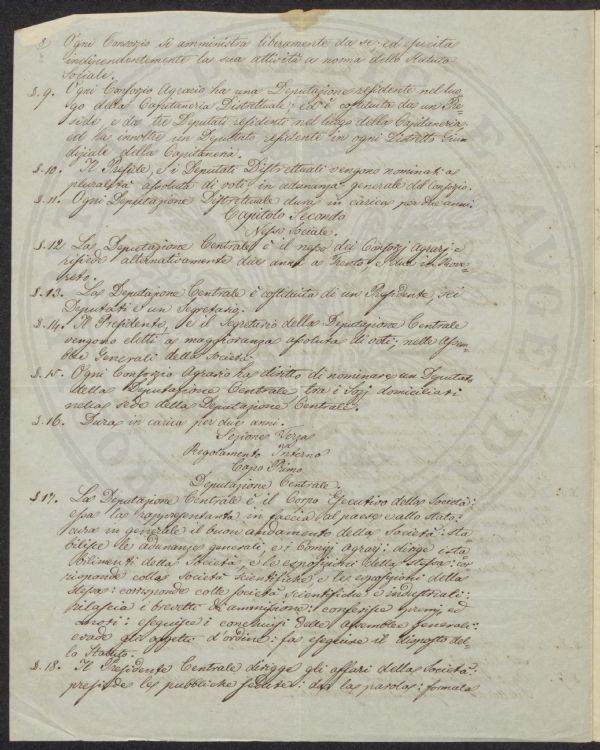 8 Ogni Consorzio si amministra liberamente da se ed esercita
indipendentemente la sua attività a norma dello Statuto
Sociale.
§. 9. Ogni Consorzio Agrario ha una Deputazione residente nel luo-
go della Capitaneria Distrettuale; ed è costituita da un Pre-
side, e da tre Deputati residenti nel luogo della Capitaneria,
ed ha inoltre un Deputato residente in ogni Distretto Giu-
diziale della Capitaneria.
§. 10. Il Preside, e i Deputati Distrettuali vengono nominati a
pluralità assoluta di voti in adunanza generale del Consorzio.
§. 11. Ogni Deputazione Distrettuale dura in carica per due anni.
Capitolo Secondo
Nesso Sociale.
§. 12 La Deputazione Centrale è il nesso dei Consorzj Agrarj e
risiede alternativamente due anni a Trento e due in Rove-
reto.
§. 13. La Deputazione Centrale è costituita di un Presidente, sei
Deputati e un Segretario.
§. 14. Il Presidente, e il Segretario della Deputazione Centrale
vengono eletti a maggioranza assoluta di voti, nelle Assem-
blee Generali della Società.
§. 15. Ogni Consorzio Agrario ha diritto di nominare un Deputato
della Deputazione Centrale tra i Sozj domiciliati
nella sede della Deputazione Centrale.
§. 16. Dura in carica per due anni.
Sezione Terza
Regolamento Interno
Capo Primo
Deputazione Centrale.
§. 17. La Deputazione Centrale è il Corpo Esecutivo della Società:
essa la rappresentanta in faccia al paese e allo Stato:
cura in generale il buon andamento della Società: sta-
bilisce le adunanze generali, e i Comizj Agrarj: dirige i sta-
bilimenti della Società, e le esposizioni della stessa: cor-
risponde colla Società scientifiche e le esposizioni della
stessa: corrisponde colle società scientifiche e industriali:
rilascia i brevetti di ammissione: conferisce premj ed
onori: eseguisce i conchiusi delle Assemblee generali:
evade gli oggetti d'ordine: fa eseguire il disposto del-
lo Statuto.
§. 18. Il Presidente Centrale dirigge gli affari della Società:
presiede le pubbliche sedute: dà la parola: formula